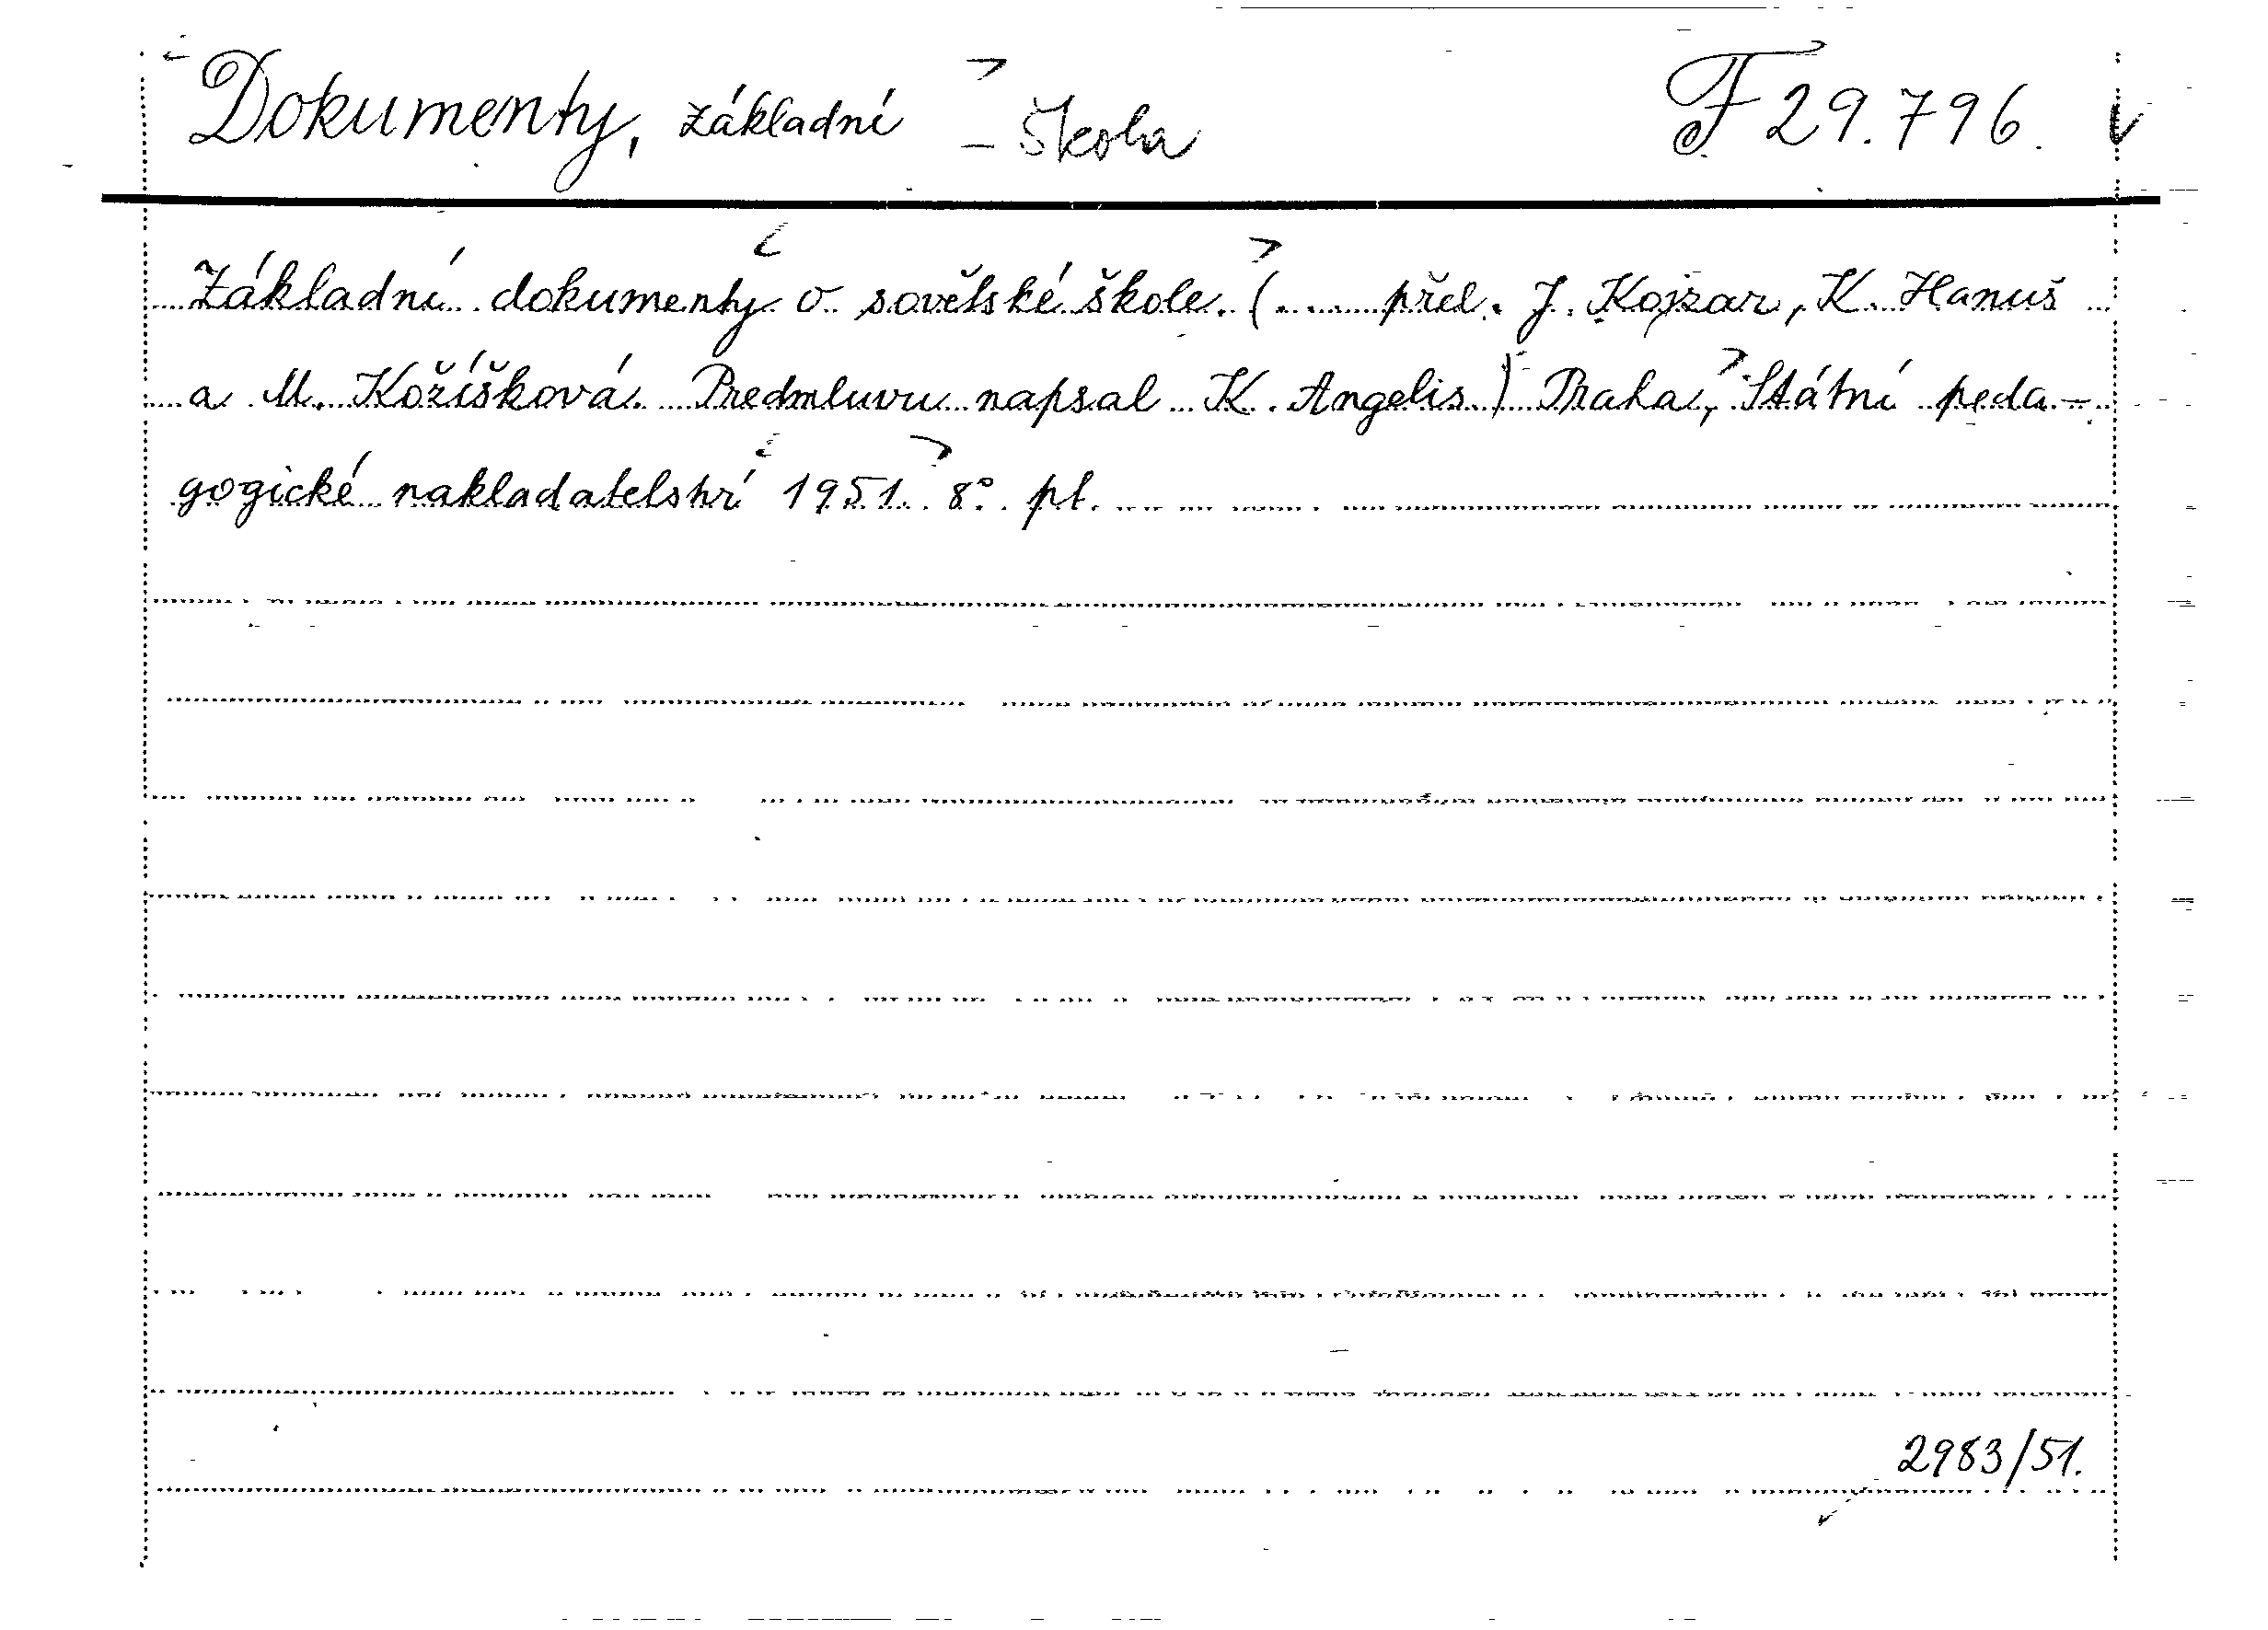 Dokumenty, základní – škola F 29.796.
Základní dokumenty o sovětské škole. (... přel. J. Kojzar, K. Hanuš
a M. Kožíšková. Předmluvu napsal K. Angelis) Praha, Státní peda-
gogické nakladatelství 1951. 8°. pl.
2983/51.